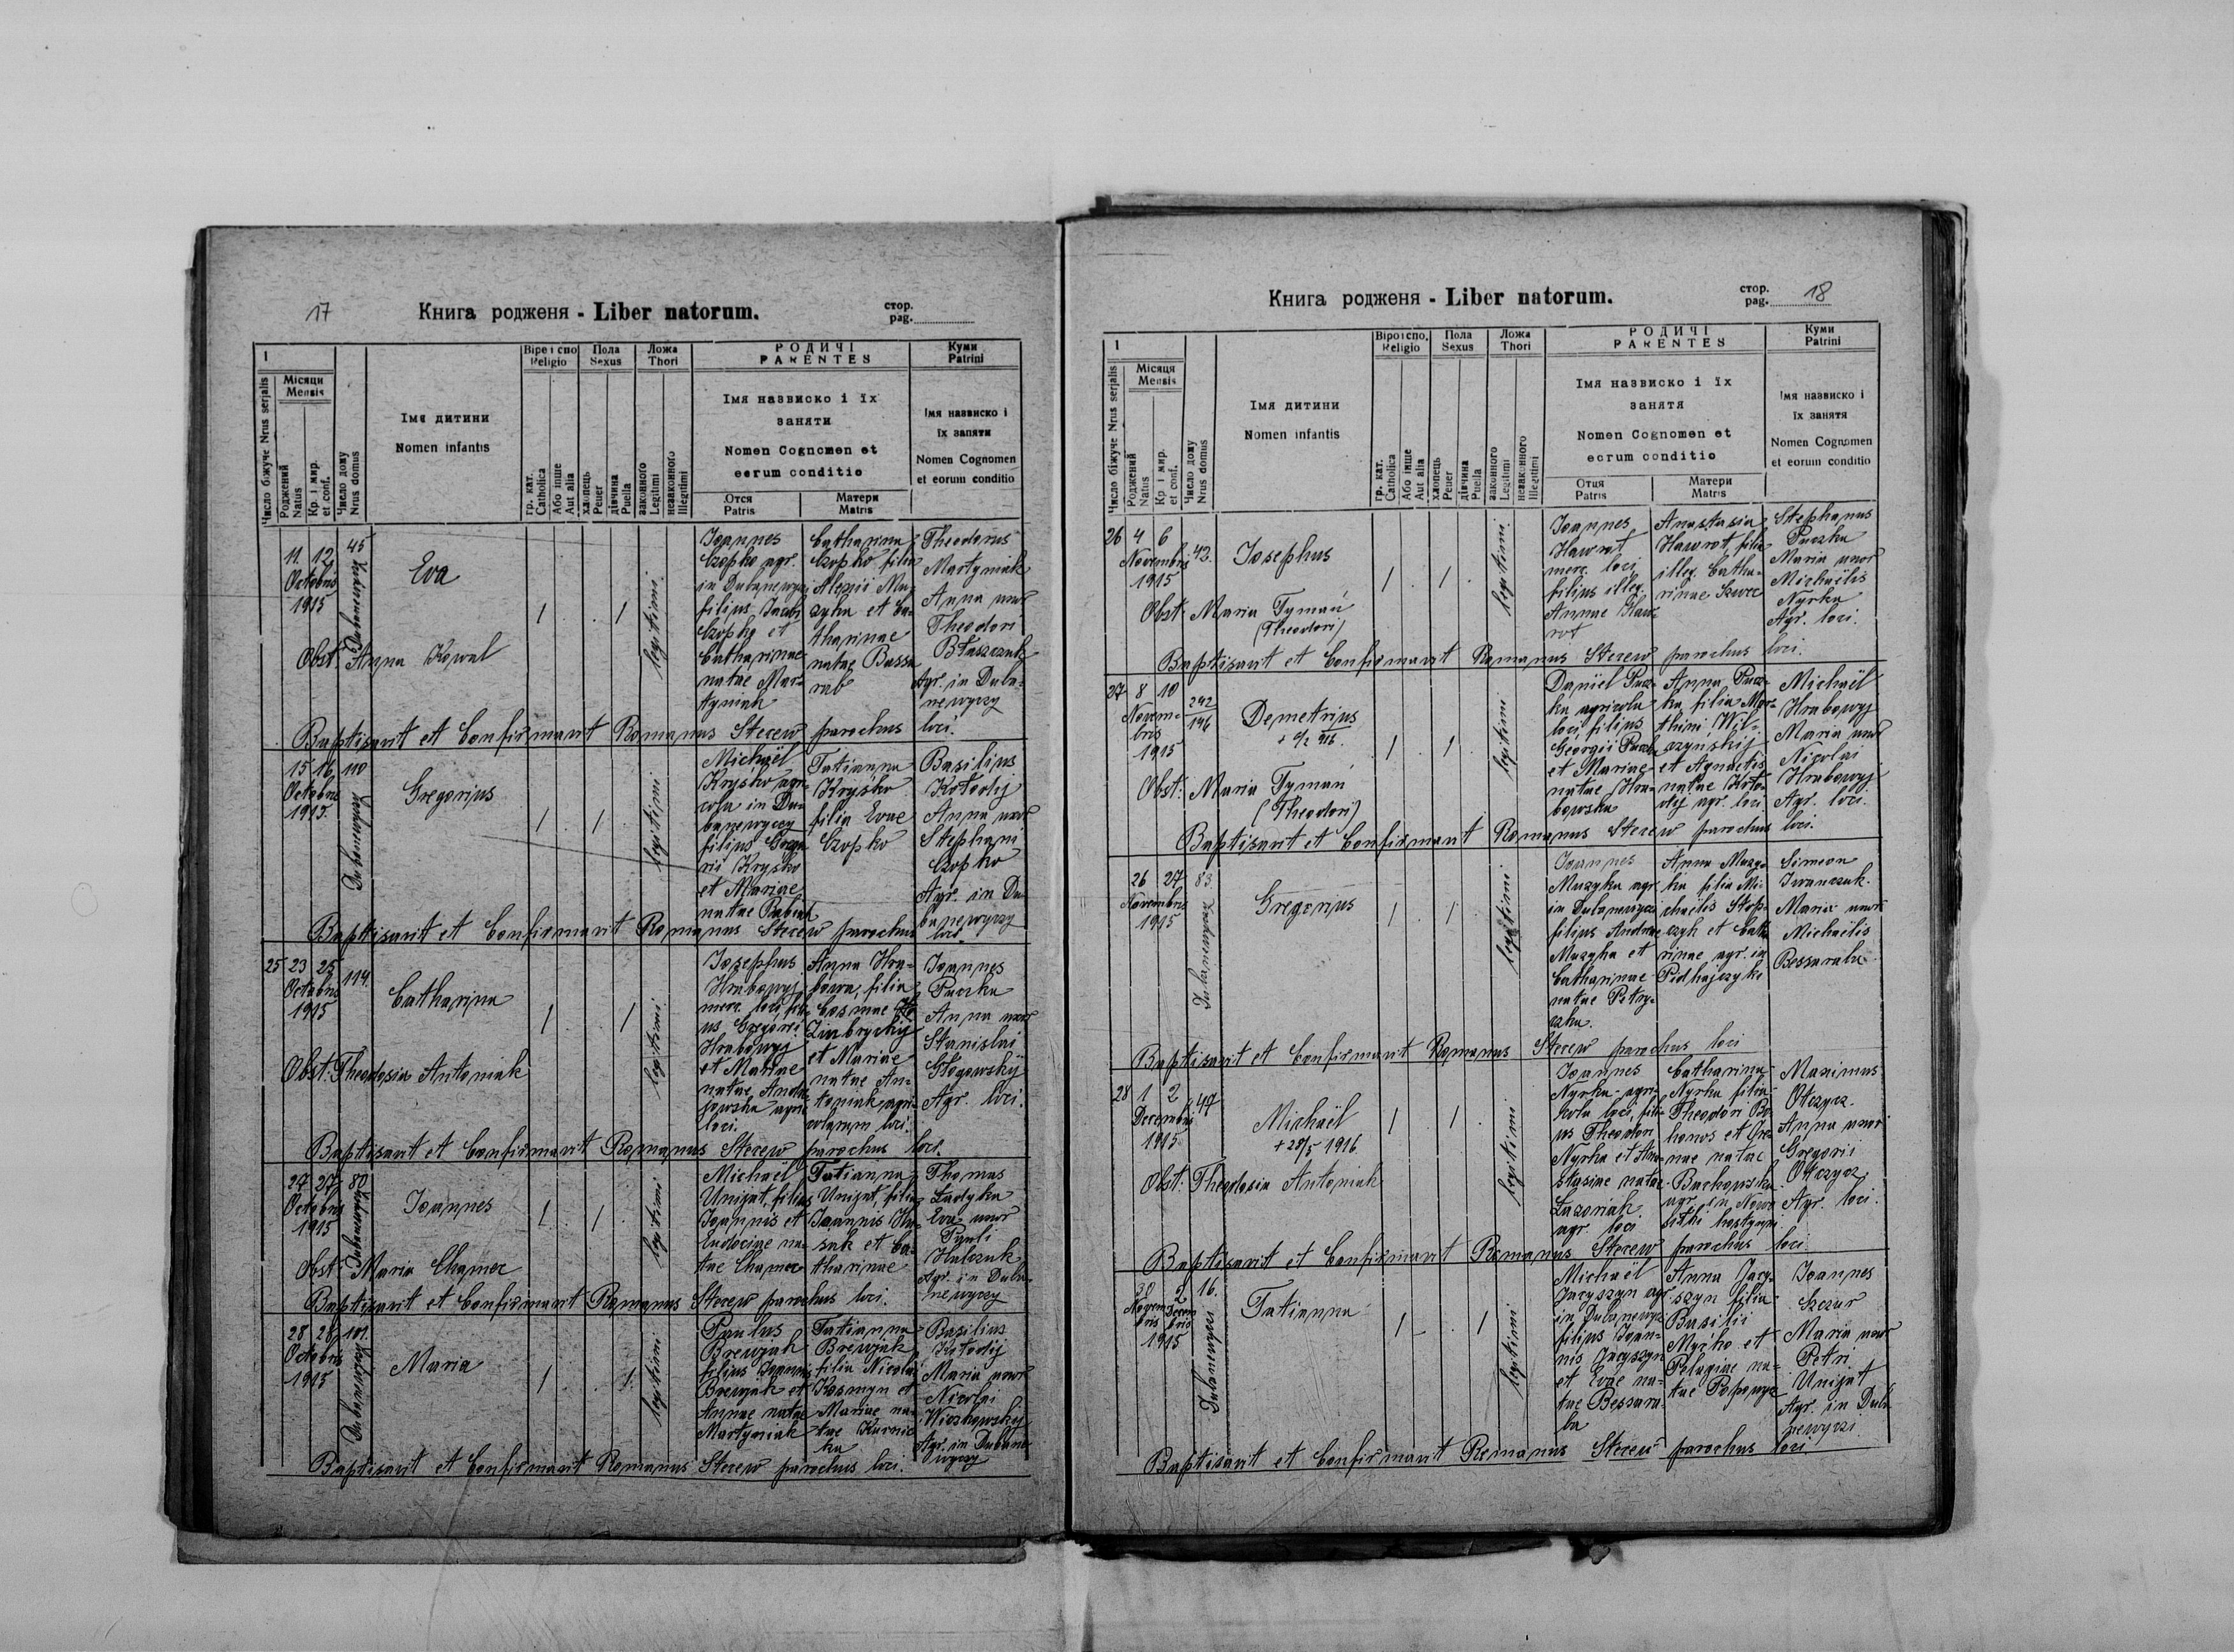 17
Книга родженя - Liber natorum.
стор.
pag.
1
Число біжуче Nrus serjalis
Місяци
Mensis
Роджений
Natus
Кр. і мир.
et conf.
Число дому
Nrus domus
Імя дитини
Nomen infantis
Віроіспо
Religio
гр. кат.
Catholica
Або інше
Aut alia
Пола
Sexus
хлопець
Peuer
дівчина
Puella
Ложа
Thori
законного
Legitimi
незаконного
Illegitimi
РОДИЧІ
PARENTES
Імя назвиско і їх
заняти
Nomen Cognomen et
eorum conditio
Отся
Patris
Матери
Matris
Куми
Patrini
Імя назвиско і
їх заняти
Nomen Cognomen
et eorum conditio
11. 12
Octobris
1915
45
Dubanewyczi
Eva
1 . . 1
legitimi.
Ioannes
Czopko agr.
in Dubanewyczi
filius Jacobi
Czopko et
Catharinae
natae Mar-
tyniak
Catharina
Czopko filia
Alexii Mu-
zyka et Ca-
tharinae
natae Bassa
rab
Theodorus
Martyniak
Anna uxor
Theodori
Błaszczak
Agr. in Duba-
newyczy
Obst. Anna Kowal
Baptisavit et Confirmavit Romanus Sterew parochus loci.
15 16
Octobris
1915.
110
Dubanewyczi
Gregorius
1 . 1 .
legitimi
Michaël
Kryśko agri-
cola in Du-
banewyczy
filius Grego
rii Kryśko
et Mariae
natae Babiak
Tatianna
Kryśko
filia Evae
Czopko
Basilius
Kołodij
Anna uxor
Stephani
Czopko
Agr. in Du-
banewyczy
Baptisavit et Confirmavit Romanus Sterew parochus loci.
25
23 25
Octobris
1915
114.
Catharina
1 . . 1
legitimi.
Iosephus
Hrabowyj
merc. loci, fili-
us Gregorii
Hrabowyj
et Mariae
natae Andru-
jowska agri
loci.
Anna Hra-
bowa, filia
Cosmae
Zimbryckij
et Mariae
natae An-
toniak, agri-
colarum loci.
Ioannes
Puczka
Anna uxor
Stanislai
Głogowskij
Agr. loci.
Obst: Theodosia Antoniak
Baptisavit et Confirmavit Romanus Sterew parochus loci.
27 27
Octobris
1915
80
Dubanewyczi
Ioannes
1 . 1 .
legitimi
Michaël
Unijat, filius
Ioannis et
Eudociae na-
tae Chamer
Tatianna
Unijat, filia
Ioannis Hu-
zak et Ca-
tharinae
Thomas
Ładyka
Eva uxor
Pauli
Hulczuk
Agr. in Duba-
newyczy
Obst: Maria Chamer
Baptisavit et Confirmavit Romanus Sterew parochus loci.
28 28
Octobris
1915
101.
Dubanewyczi
Maria
1 . . 1.
legitimi
Paulus
Brewjak
filius Ioannis
Brewjak et
Annae natae
Martyniak
Tatianna
Brewjak
filia Nicolai
Kosmyn et
Mariae na-
tae Kurnic
ka
Basilius
Kołodij
Maria uxor
Nicolai
Wiszkowskij
Agr. in Dubane-
wyczy
Baptisavit et Confirmavit Romanus Sterew parochus loci.
Книга родженя - Liber natorum.
стор.
pag. 18
1
Число біжуче Nrus serjalis
Місяця
Mensis
Роджений
Natus
Кр і мир.
et conf.
Число дому
Nrus domus
Імя дитини
Nomen infantis
Віроіспо.
Religio
гр. кат.
Catholica
Або інше
Aut alia
Пола
Sexus
хлопець
Peuer
дівчина
Puella
Ложа
Thori
законного
Legitimi
незаконного
Illegitimi
РОДИЧІ
PARENTES
Імя назвиско і їх
занятя
Nomen Cognomen et
eorum conditio
Отця
Patris
Матери
Matris
Куми
Patrini
Імя назвиско і
їх занятя
Nomen Cognomen
et eorum conditio
26
4 6
Novembris
1915
42.
Iosephus
1 . 1 .
legitimi.
Ioannes
Hawrot
merc. loci,
filius illeg.
Annae Haw-
rot
Anastasia
Hawrot, filia
illeg. Catha-
rinae Szwec
Stephanus
Puczka
Maria uxor
Michaëlis
Nyrka
Agr. loci.
Obst: Maria Tymań
(Theodori)
Baptisavit et Confirmavit Romanus Sterew parochus loci.
27
8 10
Novem-
bris
1915
242
146
Demetrius
1 . 1 .
legitimi
Daniel Pucz-
ka agricola
loci, filius
Georgii Puczka
et Mariae
natae Hra-
bowska
Anna Pucz-
ka, filia Mar-
thini Wil-
czyńskij
et Agnetis
natae Koło-
dij agr. loci
Michaël
Hrabowyj
Maria uxor
Nicolai
Hrabowyj
Agr. loci.
Obst: Maria Tymań
(Theodori)
Baptisavit et Confirmavit Romanus Sterew parochus loci.
26 27
Novembris
1915
83.
Dubanewyczi
Gregorius
1 . 1 .
legitimi
Ioannes
Muzyka agr.
in Dubanewyczi
filius Andreae
Muzyka et
Catharinae
natae Petry-
czka.
Anna Muzy-
ka filia Mi-
chaëlis Stop-
czyk et Catha
rinae agr. in
Pidhajczyki
Simeon
Iwanczuk.
Maria uxor
Michaëlis
Bessaraba
Baptisavit et Confirmavit Romanus Sterew parochus loci
28
1 2
Decembris
1915
47
Michaël
+ 28/5 1916
1 . 1 .
legitimi
Ioannes
Nyrka - agri-
cola loci, fili-
us Theodori
Nyrka et Ana-
stasiae natae
Łazoniak
agr. loci
Catharina
Nyrka filia
Theodori Bo-
honos et Ire-
nae natae
Buchowska
agr. in Nowo
sitki hostynni
Maximus
Otczycz.
Anna uxor
Gregorii
Otczycz
Agr. loci.
Obst: Theodosia Antoniak
Baptisavit et Confirmavit Romanus Sterew parochus loci.
30 2
Novem Decem
bris bris
1915
16.
Dubanewyczi
Tatianna
1 . . 1
legitimi
Michaël
Jacyszyn agr
in Dubanewyczi
filius Ioan-
nis Jacyszyn
et Evae na-
tae Bessara-
ba
Anna Jacy-
szyn filia
Basilii
Myćko et
Pelagiae na-
tae Popowycz
Ioannes
Szczur
Maria uxor
Petri
Unijat
Agr. in Duba-
newyczi
Baptisavit et Confirmavit Romanus Sterew parochus loci